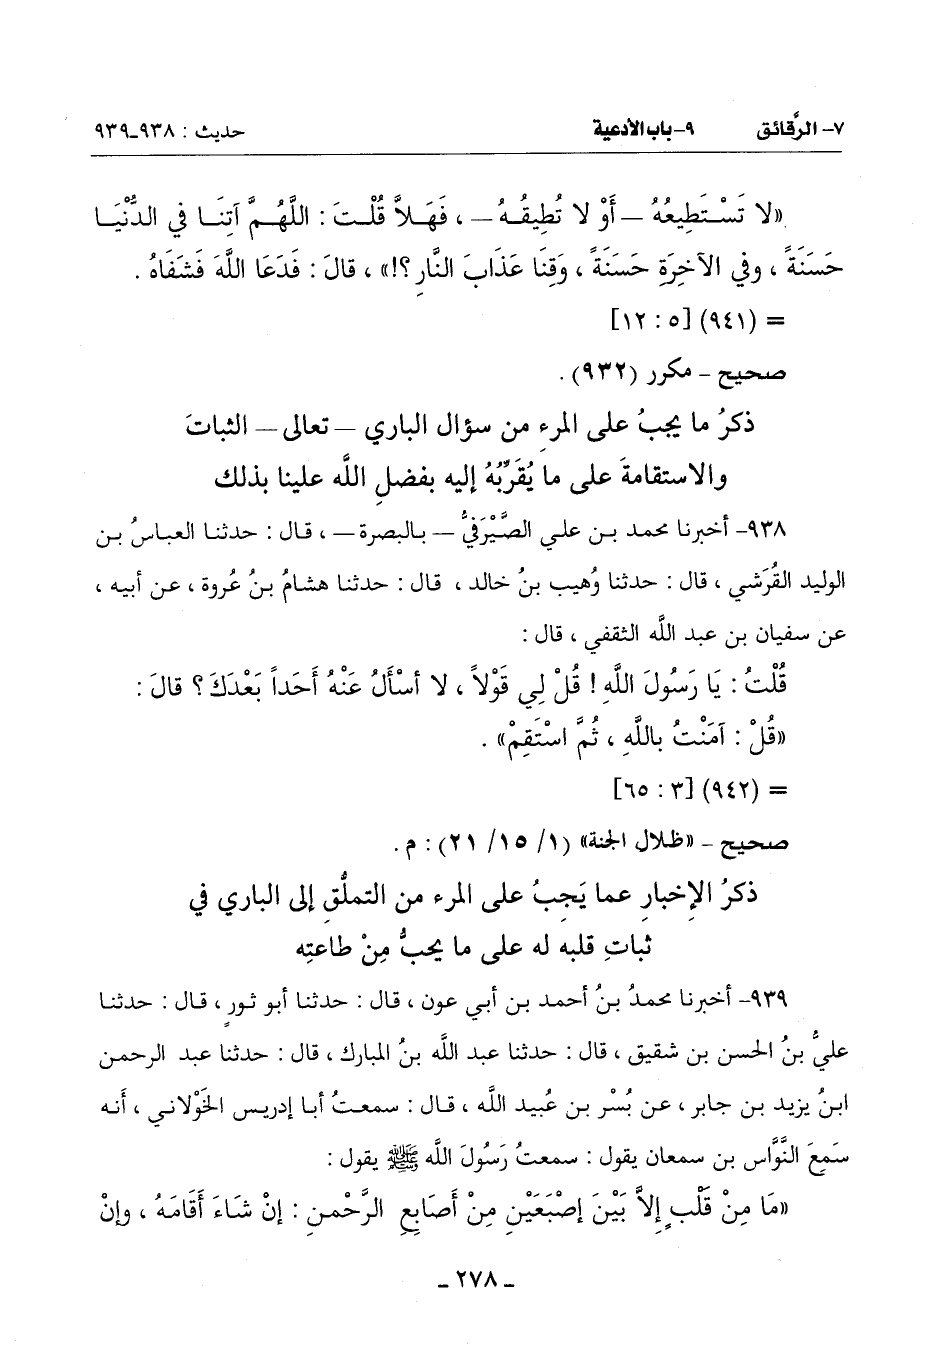 ٧- الرَّقائق ٩-باب الأدعية حديث : ٩٣٨-٩٣٩
«لا تَسْتَطِيعُهُ — أَوْ لا تُطِيقُهُ — ، فَهَلاَّ قُلْتَ : اللَّهُمَّ آتِنَا في الدُّنْيَا
حَسَنَةً ، وفي الآخِرَةِ حَسَنَةً ، وَقِنَا عَذَابَ النَّارِ ؟!» ، قالَ : فَدَعَا اللَّهَ فَشَفَاهُ .
= (٩٤١) [٥ : ١٢]
صحيح - مكرر (٩٣٢) .
ذكرُ ما يجبُ على المرءِ من سؤال الباري — تعالى — الثباتَ
والاستقامةَ على ما يُقَرِّبُهُ إليه بفضلِ اللَّه علينا بذلك
٩٣٨- أخبرنا محمد بن علي الصَّيْرَفيُّ — بالبصرة — ، قال : حدثنا العباسُ بن
الوليد القُرَشي ، قال : حدثنا وُهيب بنُ خالد ، قال : حدثنا هشامُ بنُ عُروة ، عن أبيه ،
عن سفيان بن عبد اللَّه الثقفي ، قال :
قُلْتُ : يَا رَسُولَ اللَّهِ ! قُلْ لِي قَوْلاً ، لا أسْأَلُ عَنْهُ أَحَداً بَعْدَكَ ؟ قالَ :
«قُلْ : آمَنْتُ باللَّهِ ، ثُمَّ اسْتَقِمْ» .
= (٩٤٢) [٣ : ٦٥]
صحيح - «ظلال الجنة» (١/ ١٥/ ٢١) : م .
ذكرُ الإخبارِ عما يَجِبُ على المرء من التملُّقِ إلى الباري في
ثباتِ قلبه له على ما يحبُّ مِنْ طاعتِه
٩٣٩- أخبرنا محمدُ بنُ أحمد بن أبي عون ، قال : حدثنا أبو ثورٍ ، قال : حدثنا
عليُّ بنُ الحسن بن شقيق ، قال : حدثنا عبد اللَّه بنُ المبارك ، قال : حدثنا عبد الرحمن
ابنُ يزيد بن جابر ، عن بُسْر بن عُبيد اللَّه ، قال : سمعتُ أبا إدريس الخَوْلاني ، أَنه
سَمِعَ النَّوَّاس بن سمعان يقول : سمعتُ رَسُولَ اللَّه ﷺ يقول :
«مَا مِنْ قَلْبٍ إلاَّ بَيْنَ إصْبَعَيْنِ مِنْ أَصَابِعِ الرَّحْمنِ : إنْ شَاءَ أَقَامَهُ ، وإنْ
- ٢٧٨ -